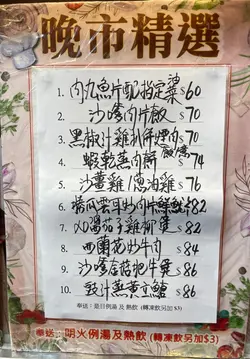 晚市精選
1. 肉丸魚片配指定油菜 $60
2. 沙嗲肉片飯 $70
3. 黑椒汁雞扒 $70
4. 蝦乾蒸肉餅 $74
5. 沙薑雞/葱油雞 $76
6. 雲耳炒肉片 $82
7. 雞柳煲 $82
8. 西蘭花炒牛肉 $84
9. 沙嗲 牛煲 $86
10. 豉汁蒸黃立鱠 $86
奉送：是日例湯 及 熱飲 (轉凍飲另加 $3)
奉送：明火例湯及熱飲 (轉凍飲另加$3)